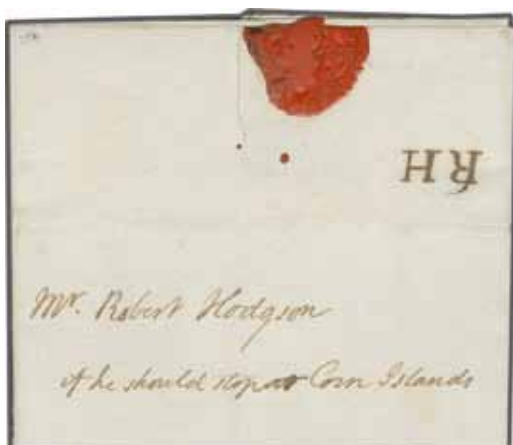 RH
Mr. Robert Hodgson
if he should stop at Corn Islands